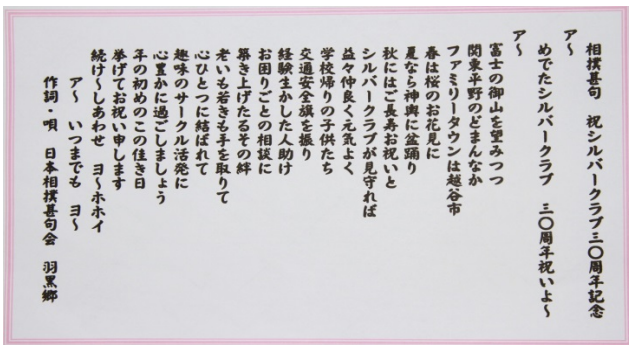 相撲甚句　祝シルバークラブ三〇周年記念
ア〜
めでたシルバークラブ　三〇周年祝いよ〜
ア〜
富士の御山を望みつつ
関東平野のどまんなか
ファミリータウンは越谷市
春は桜のお花見に
夏なら神輿に盆踊り
秋にはご長寿お祝いと
シルバークラブが見守れば
益々仲良く元気よく
学校帰りの子供たち
交通安全旗を振り
経験生かした人助け
お困りごとの相談に
築き上げたるその絆
老いも若きも手を取りて
心ひとつに結ばれて
趣味のサークル活発に
心豊かに過ごしましょう
年の初めのこの佳き日
挙げてお祝い申します
続け〜しあわせ　ヨ〜ホホイ
ア〜　いつまでも　ヨ〜
作詞・唄　日本相撲甚句会　羽黒郷